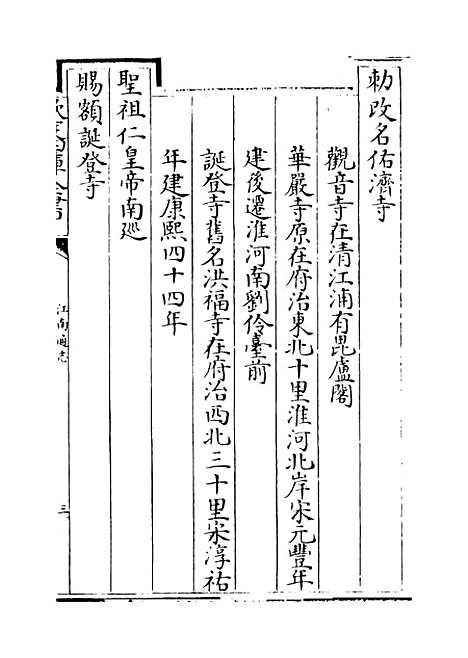 勅改名佑濟寺
觀音寺在清江浦有毘盧閣
華嚴寺原在府治東北十里淮河北岸宋元豐年
建後遷淮河南劉伶臺前
誕登寺舊名洪福寺在府治西北三十里宋淳祐
年建康熙四十四年
聖祖仁皇帝南巡
賜額誕登寺
江南通志
三